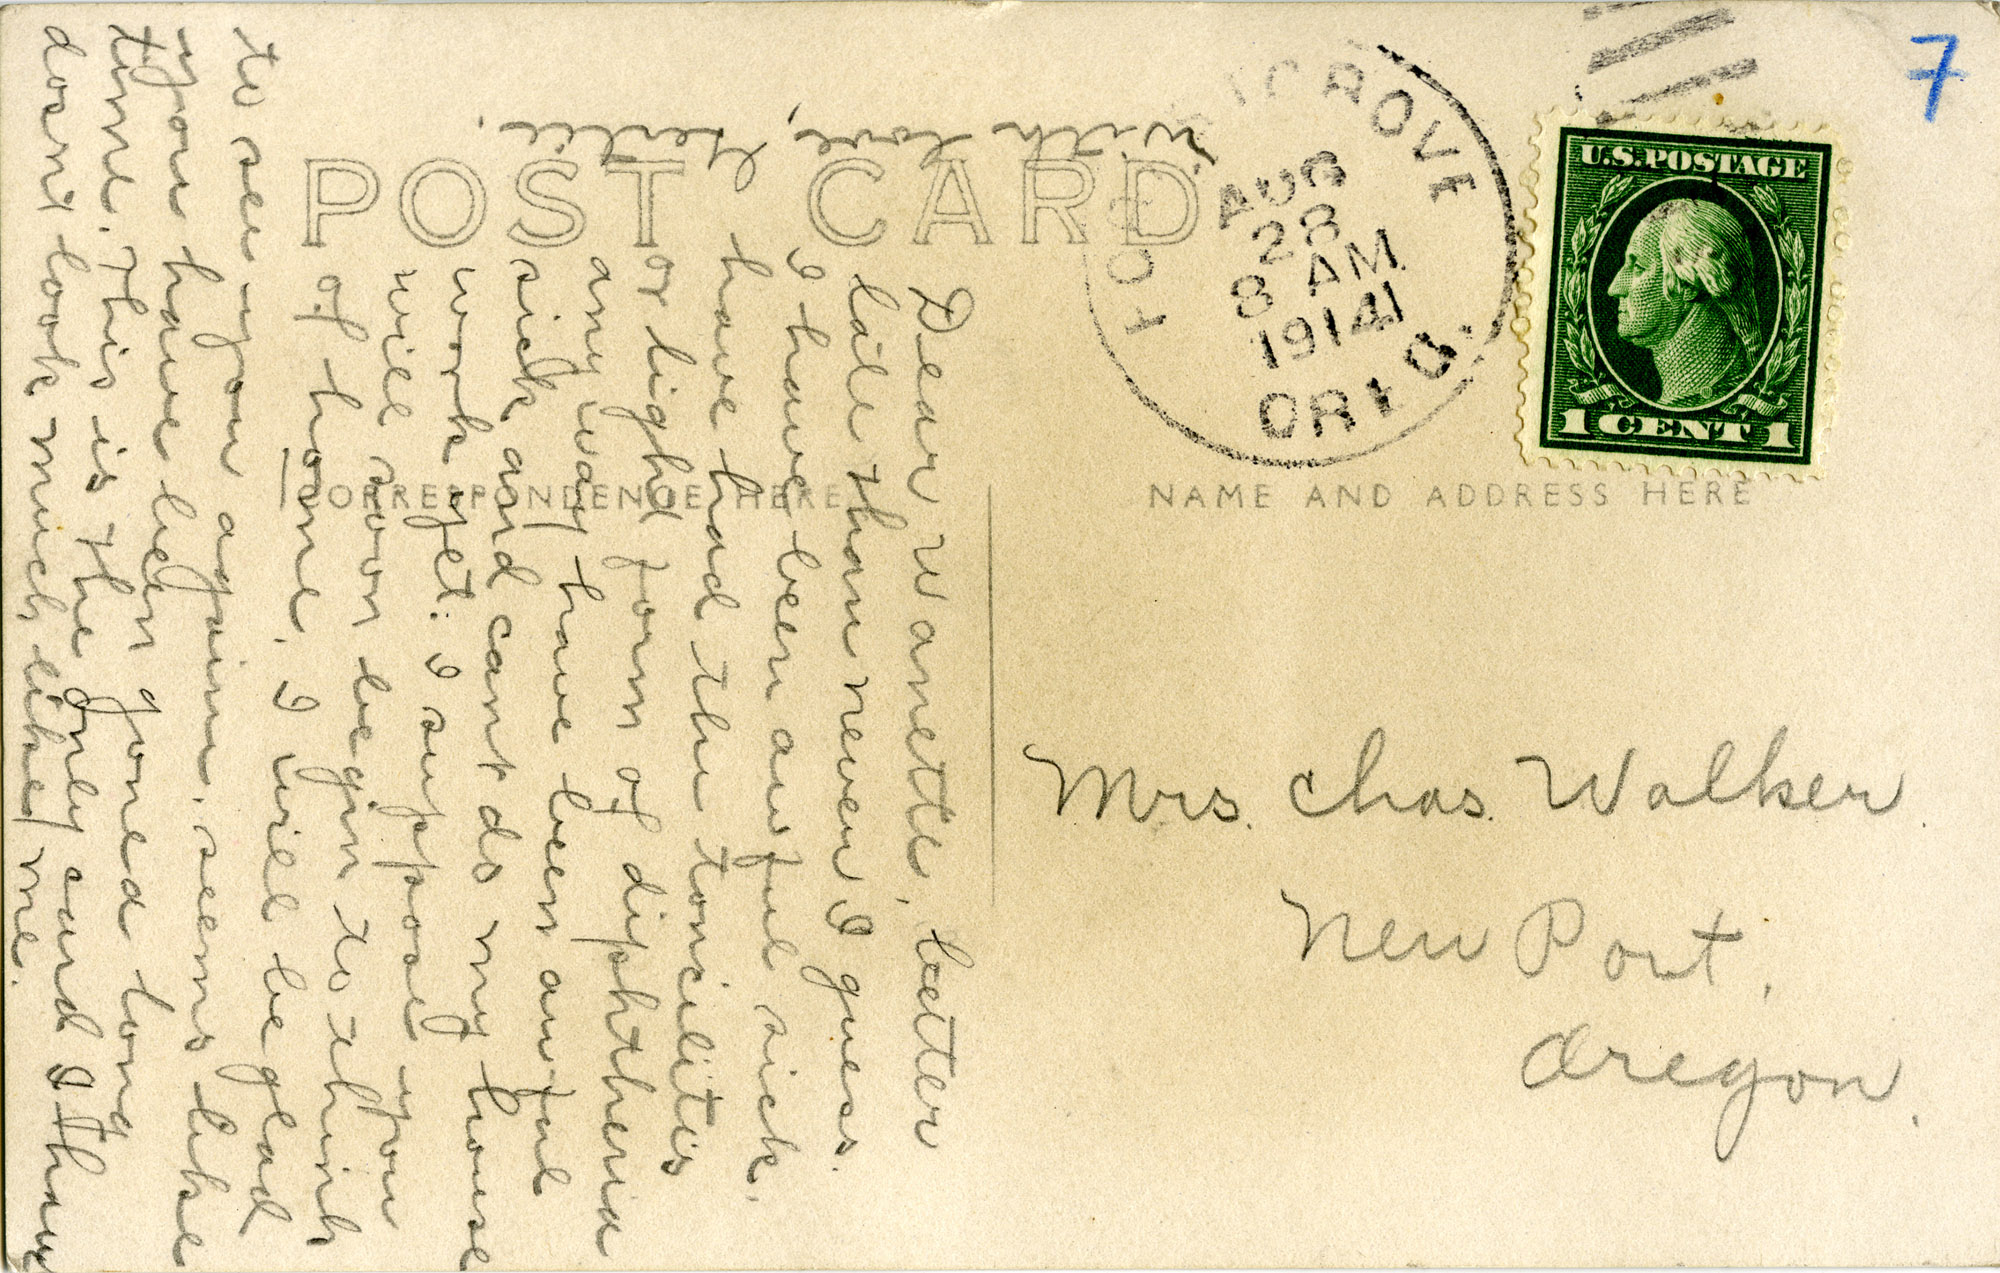 POST CARD
CORRESPONDENCE HERE
NAME AND ADDRESS HERE
FOREST GROVE
AUG
28
8 AM
1914
OREG.
U.S. POSTAGE
1 CENT 1
7
Mrs. Chas. Walker.
New Port,
Oregon.
Dear Wanette, better
late than never I guess.
I have been awful sick.
have had the toncilitis
or light form of diphtheria
any way have been awful
sick and cant do my house
work yet. I suppose you
will soon begin to think
of home. I will be glad
to see you again. seems like
you have been goned long
time. This is the only card I have
dosnt look much like me.
With love,